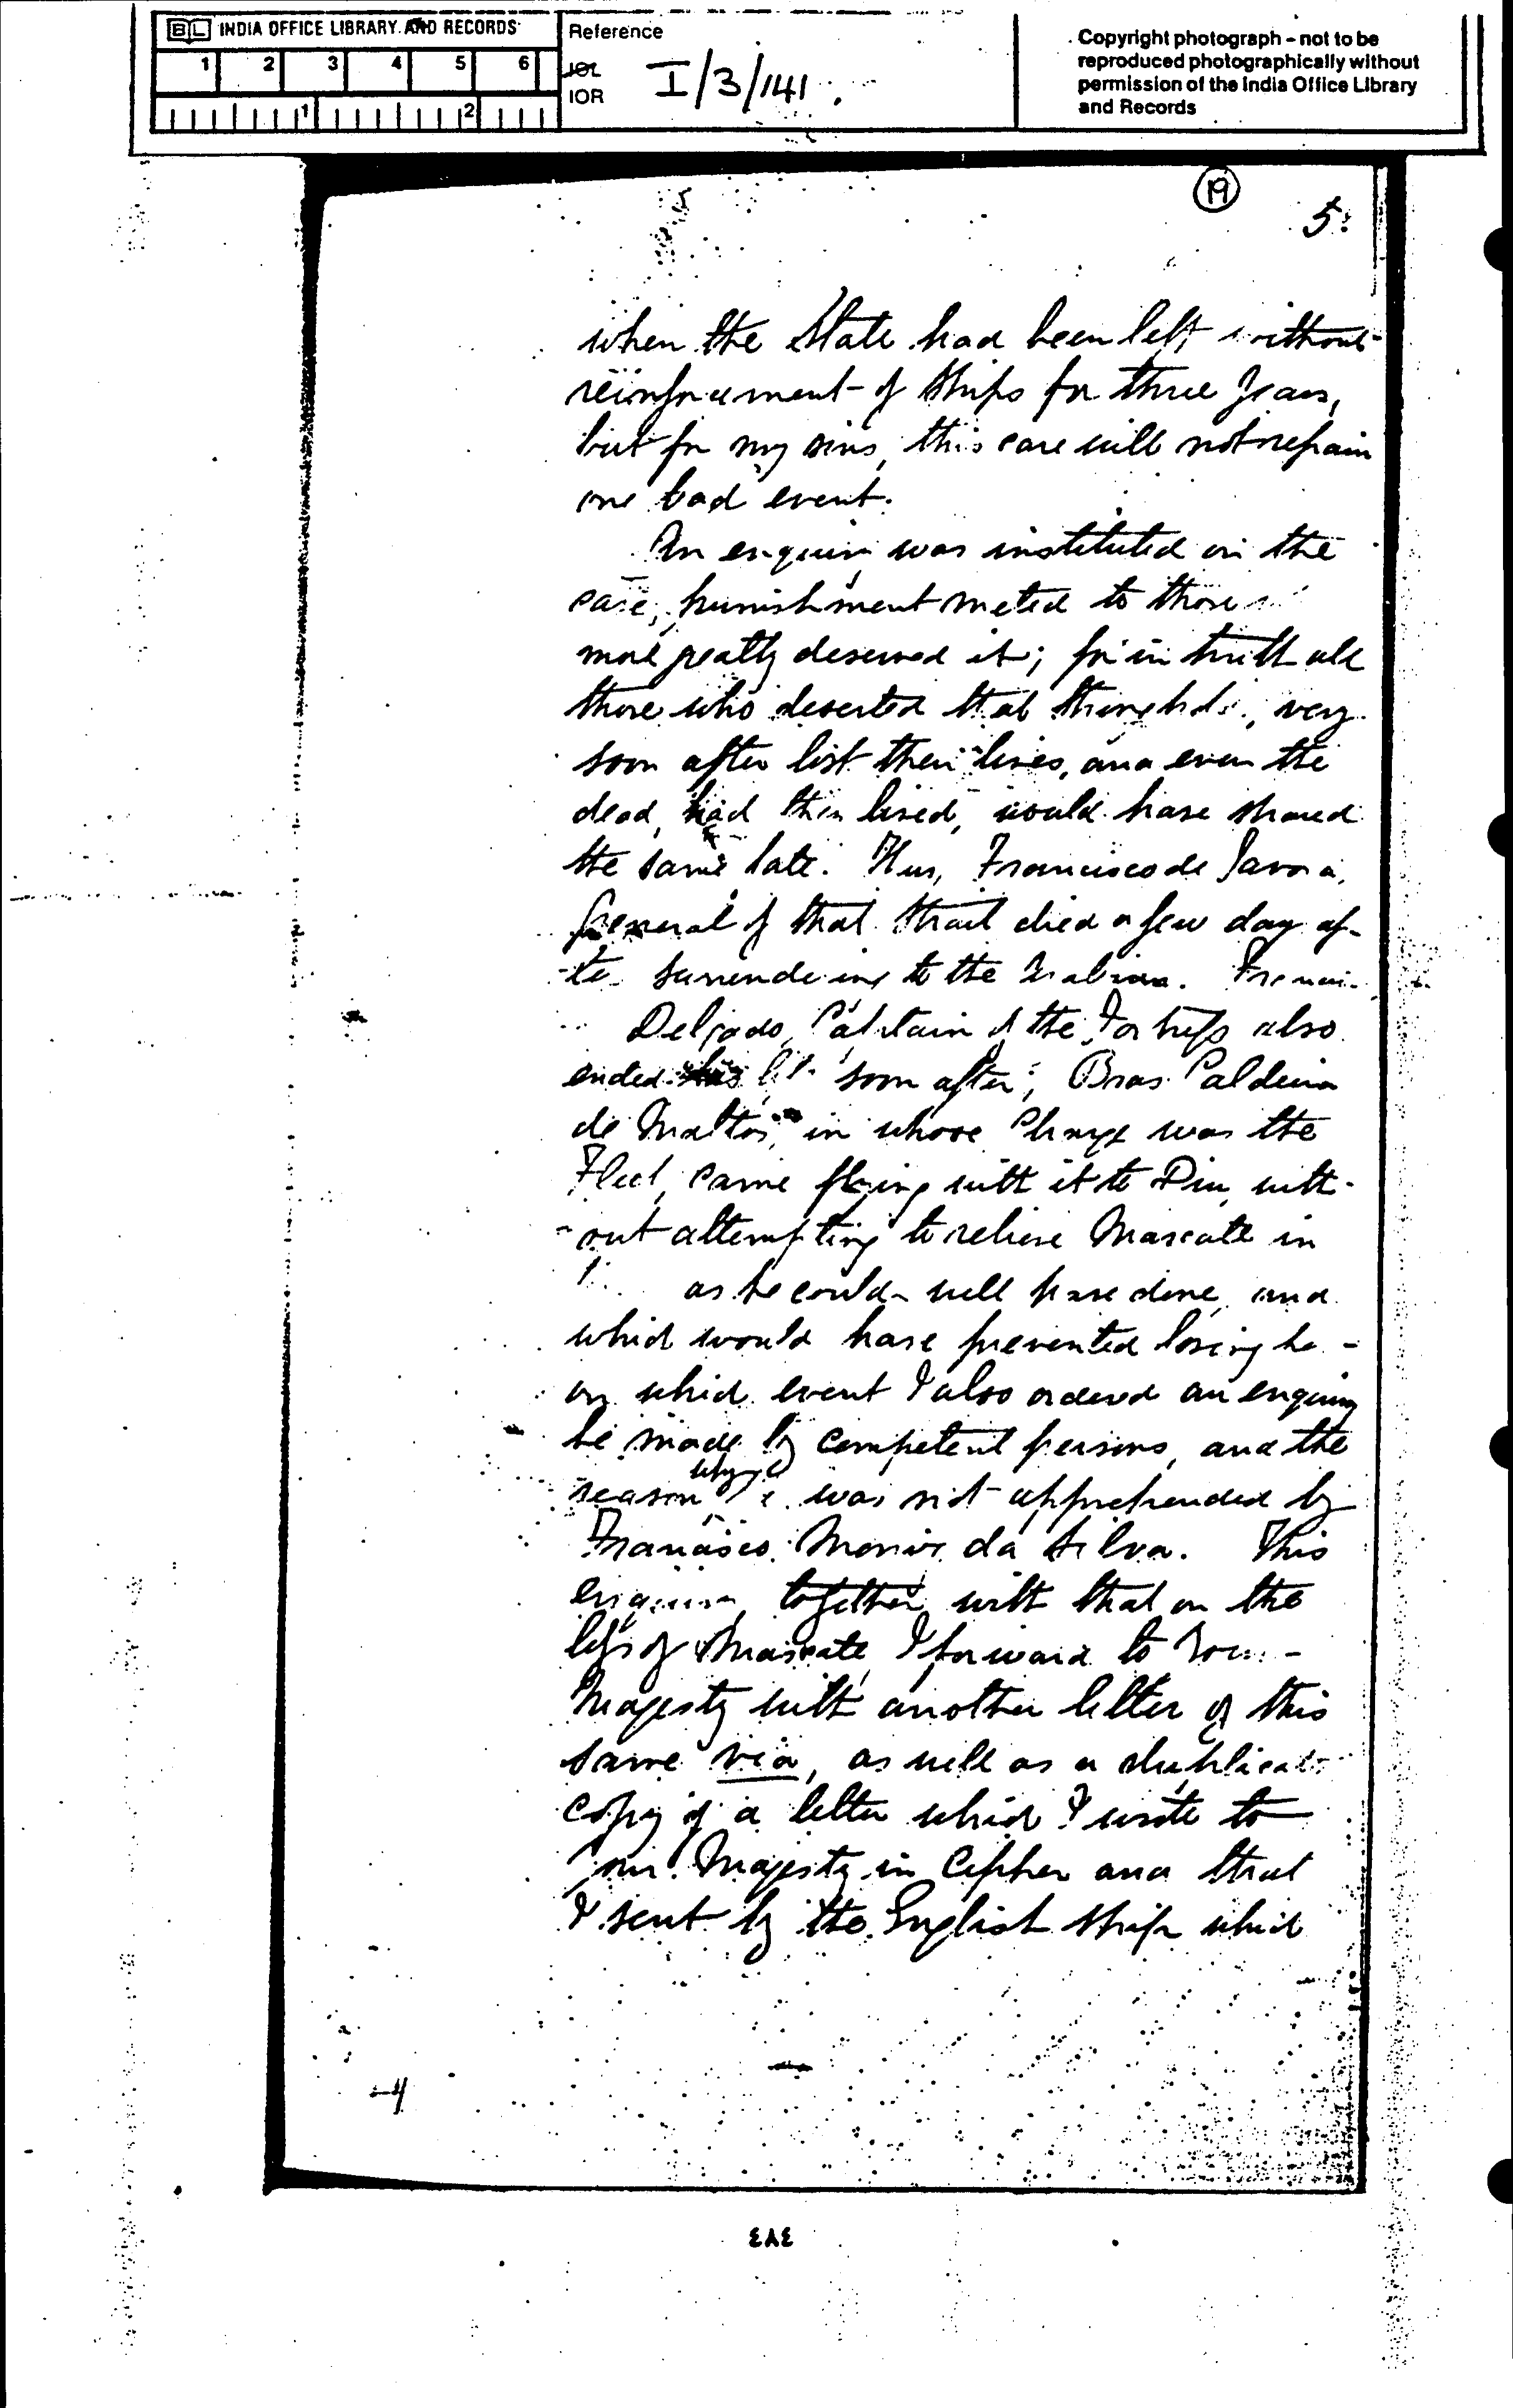 BL INDIA OFFICE LIBRARY AND RECORDS
1 2 3 4 5 6
1 2
Reference
IOL
IOR
I/3/141
Copyright photograph - not to be
reproduced photographically without
permission of the India Office Library
and Records
19
5
when the State had been left without
reinforcement of ships for three years,
but for my sins, this care will not repair
one bad event.
An enquiry was instituted on the
case, punishment meted to those
more greatly deserved it; for in truth all
those who deserted that stronghold, very
soon after lost their lives, and even the
dead, had they lived, would have shared
the same fate. Thus, Francisco de Tavora,
General of that Strait died a few day af-
-ter surrendering to the Arabians.
Delgado, Captain of the Fortress also
ended his life soon after; Bras Caldeira
de Mattos, in whose charge was the
Fleet, came flying with it to Diu, with-
-out attempting to relieve Mascate in
as he could well have done, and
which would have prevented losing he -
on which event I also ordered an enquiry
be made by competent persons, and the
reason why he was not apprehended by
Francisco da Silva. This
enquiry, together with that on the
loss of Mascate, I forward to Your -
Majesty with another letter of this
same via, as well as a duplicate
copy of a letter which I wrote to
Your Majesty in Cipher and that
I sent by the English ship which
4
٤٨٤